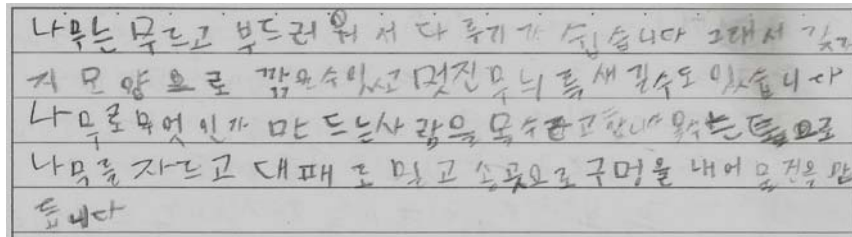 나무는 무르고 부드러워서 다루기가 쉽습니다 그래서 갖가
지 모양으로 깎으수있고 멋진무늬를 새길수도 있습니다
나무로무엇인가 만드는사람을 목수라고합니다 목수는 톱으로
나무를 자르고 대패로 밀고 송곳으로구멍을 내어 물건을 만
듭니다